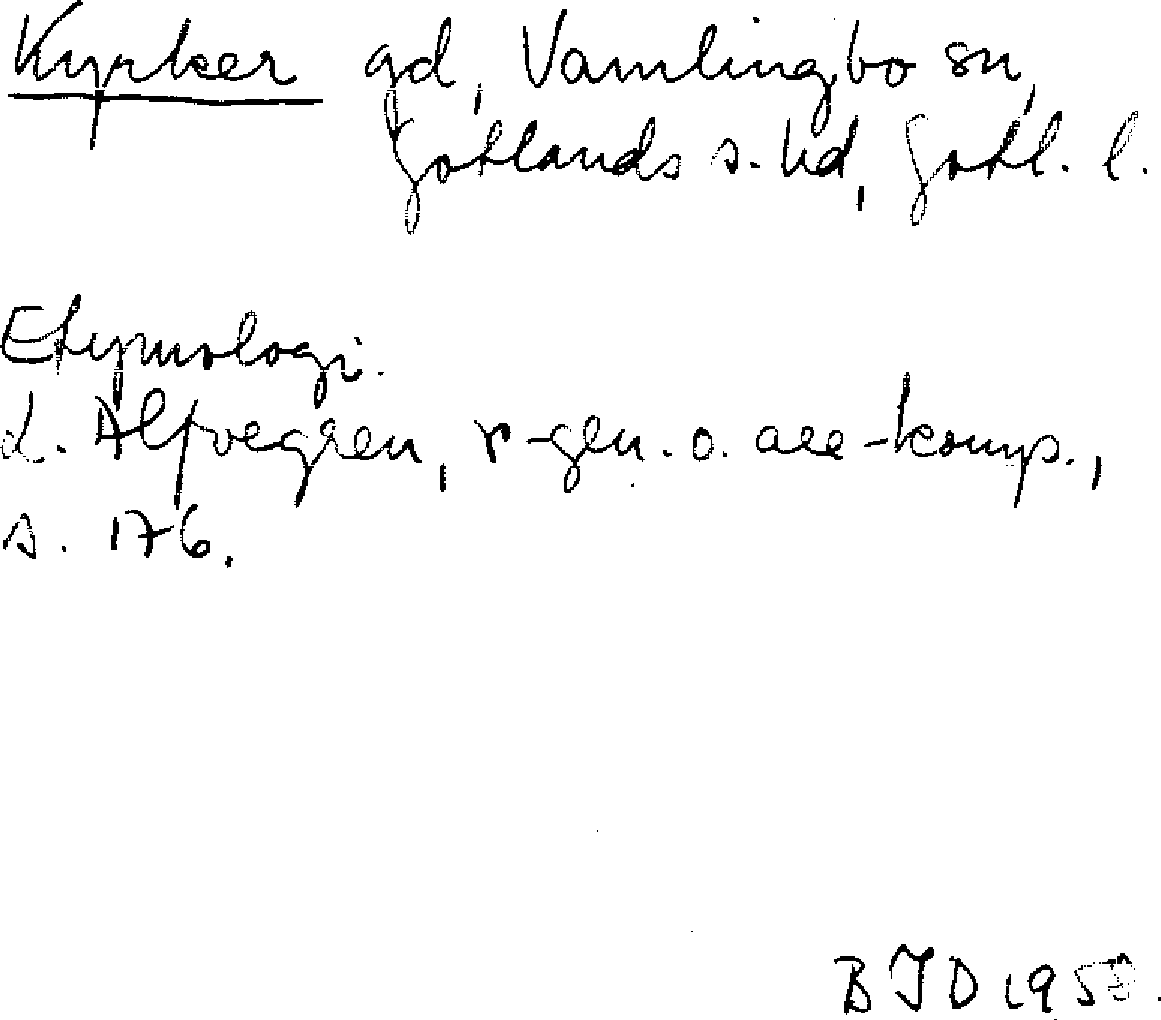 Kyrker gd, Vamlingbo sn,
Gotlands s. hd, Gotl. l.
Etymologi.
L. Alfvegren, r-gen. o. are-komp.,
s. 176.
BJD